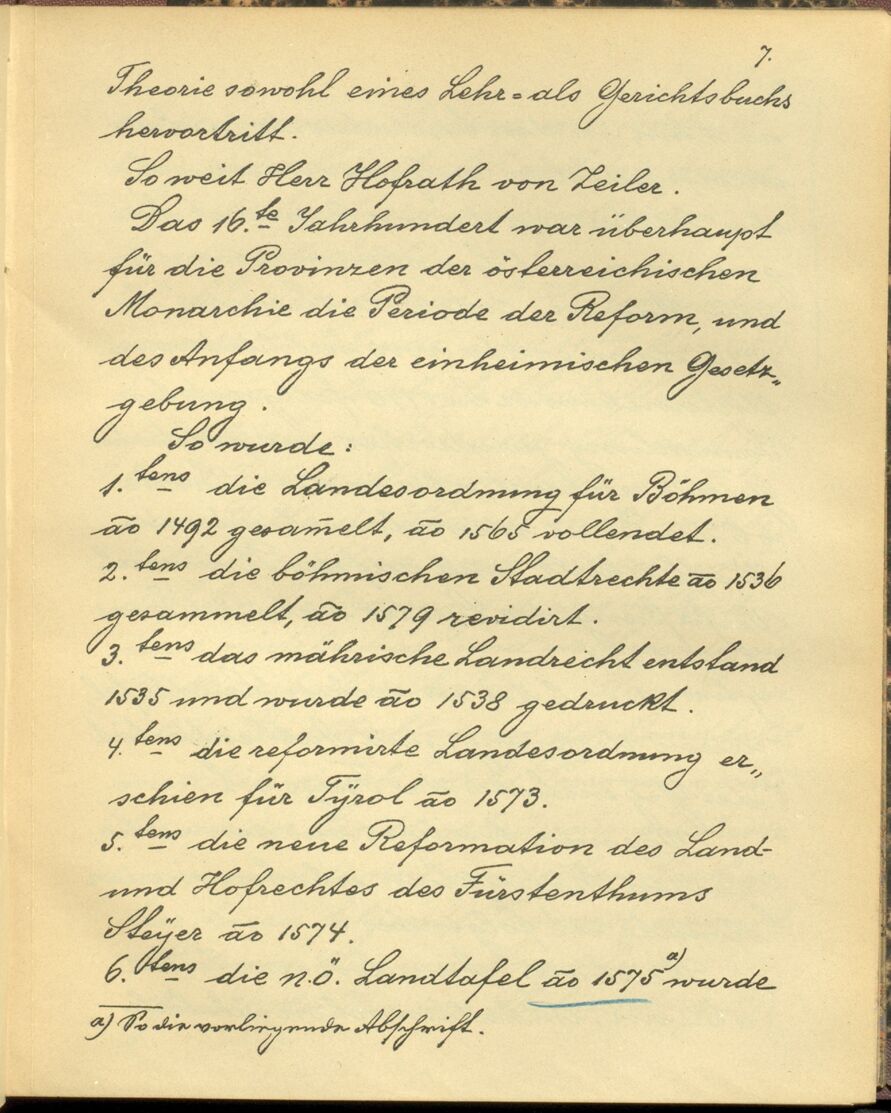 7.
Theorie sowohl eines Lehr= als Gerichtsbuchs
hervortritt.
So weit Herr Hofrath von Zeiler.
Das 16.te Jahrhundert war überhaupt
für die Provinzen der österreichischen
Monarchie die Periode der Reform, und
des Anfangs der einheimischen Gesetz„
gebung.
So wurde:
1.tens die Landesordnung für Böhmen
āo 1492 gesam̄elt, āo 1565 vollendet.
2.tens die böhmischen Stadtrechte āo 1536
gesammelt, āo 1579 revidirt.
3.tens das mährische Landrecht entstand
1535 und wurde āo 1538 gedruckt.
4.tens die reformirte Landesordnung er„
schien für Tÿrol āo 1573.
5.tens die neue Reformation des Land-
und Hofrechtes des Fürstenthums
Steÿer āo 1574.
6.tens die n.ö. Landtafel āo 1575 a) wurde
a) So die vorliegende Abschrift.